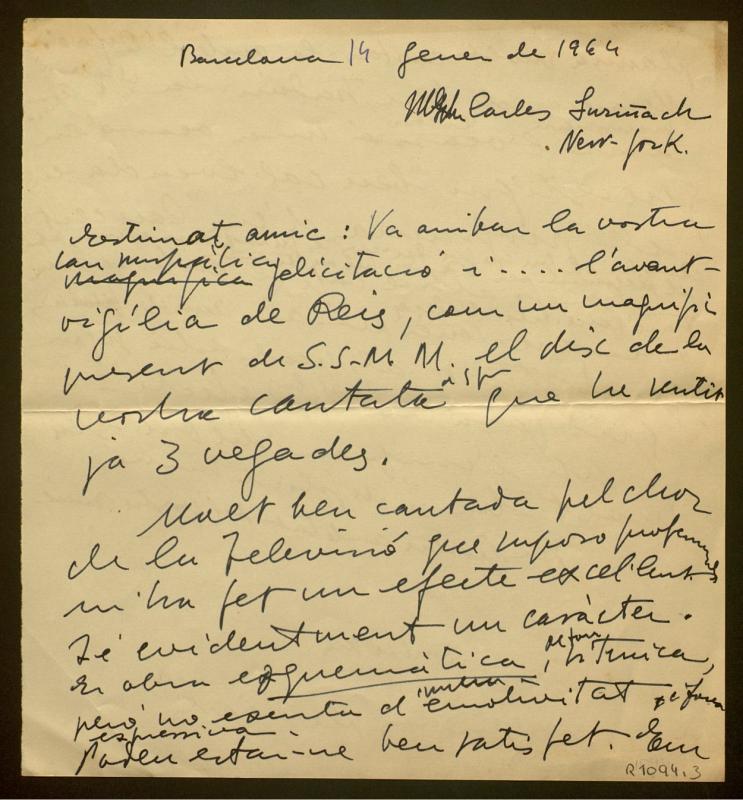 Barcelona 14 gener de 1964
Carles Suriñach
New-York.
Estimat amic: Va arribar la vostra
tan simpática
magnifica felicitació i.... l'avant-
vigília de Reis, com un magnific
present de S.S.M M. el disc de la
vostra cantata que he sentit
ja 3 vegades.
Molt ben cantada pel chor
de la Televisió que suposo professionals
m'ha fet un efecte excel·lent.
Té evidentment un caràcter.
Es obra esquemàtica, rítmica,
però no exenta d'emotivitat
expressiva
Poden estar-ne ben satisfet. Em
R 1094.3